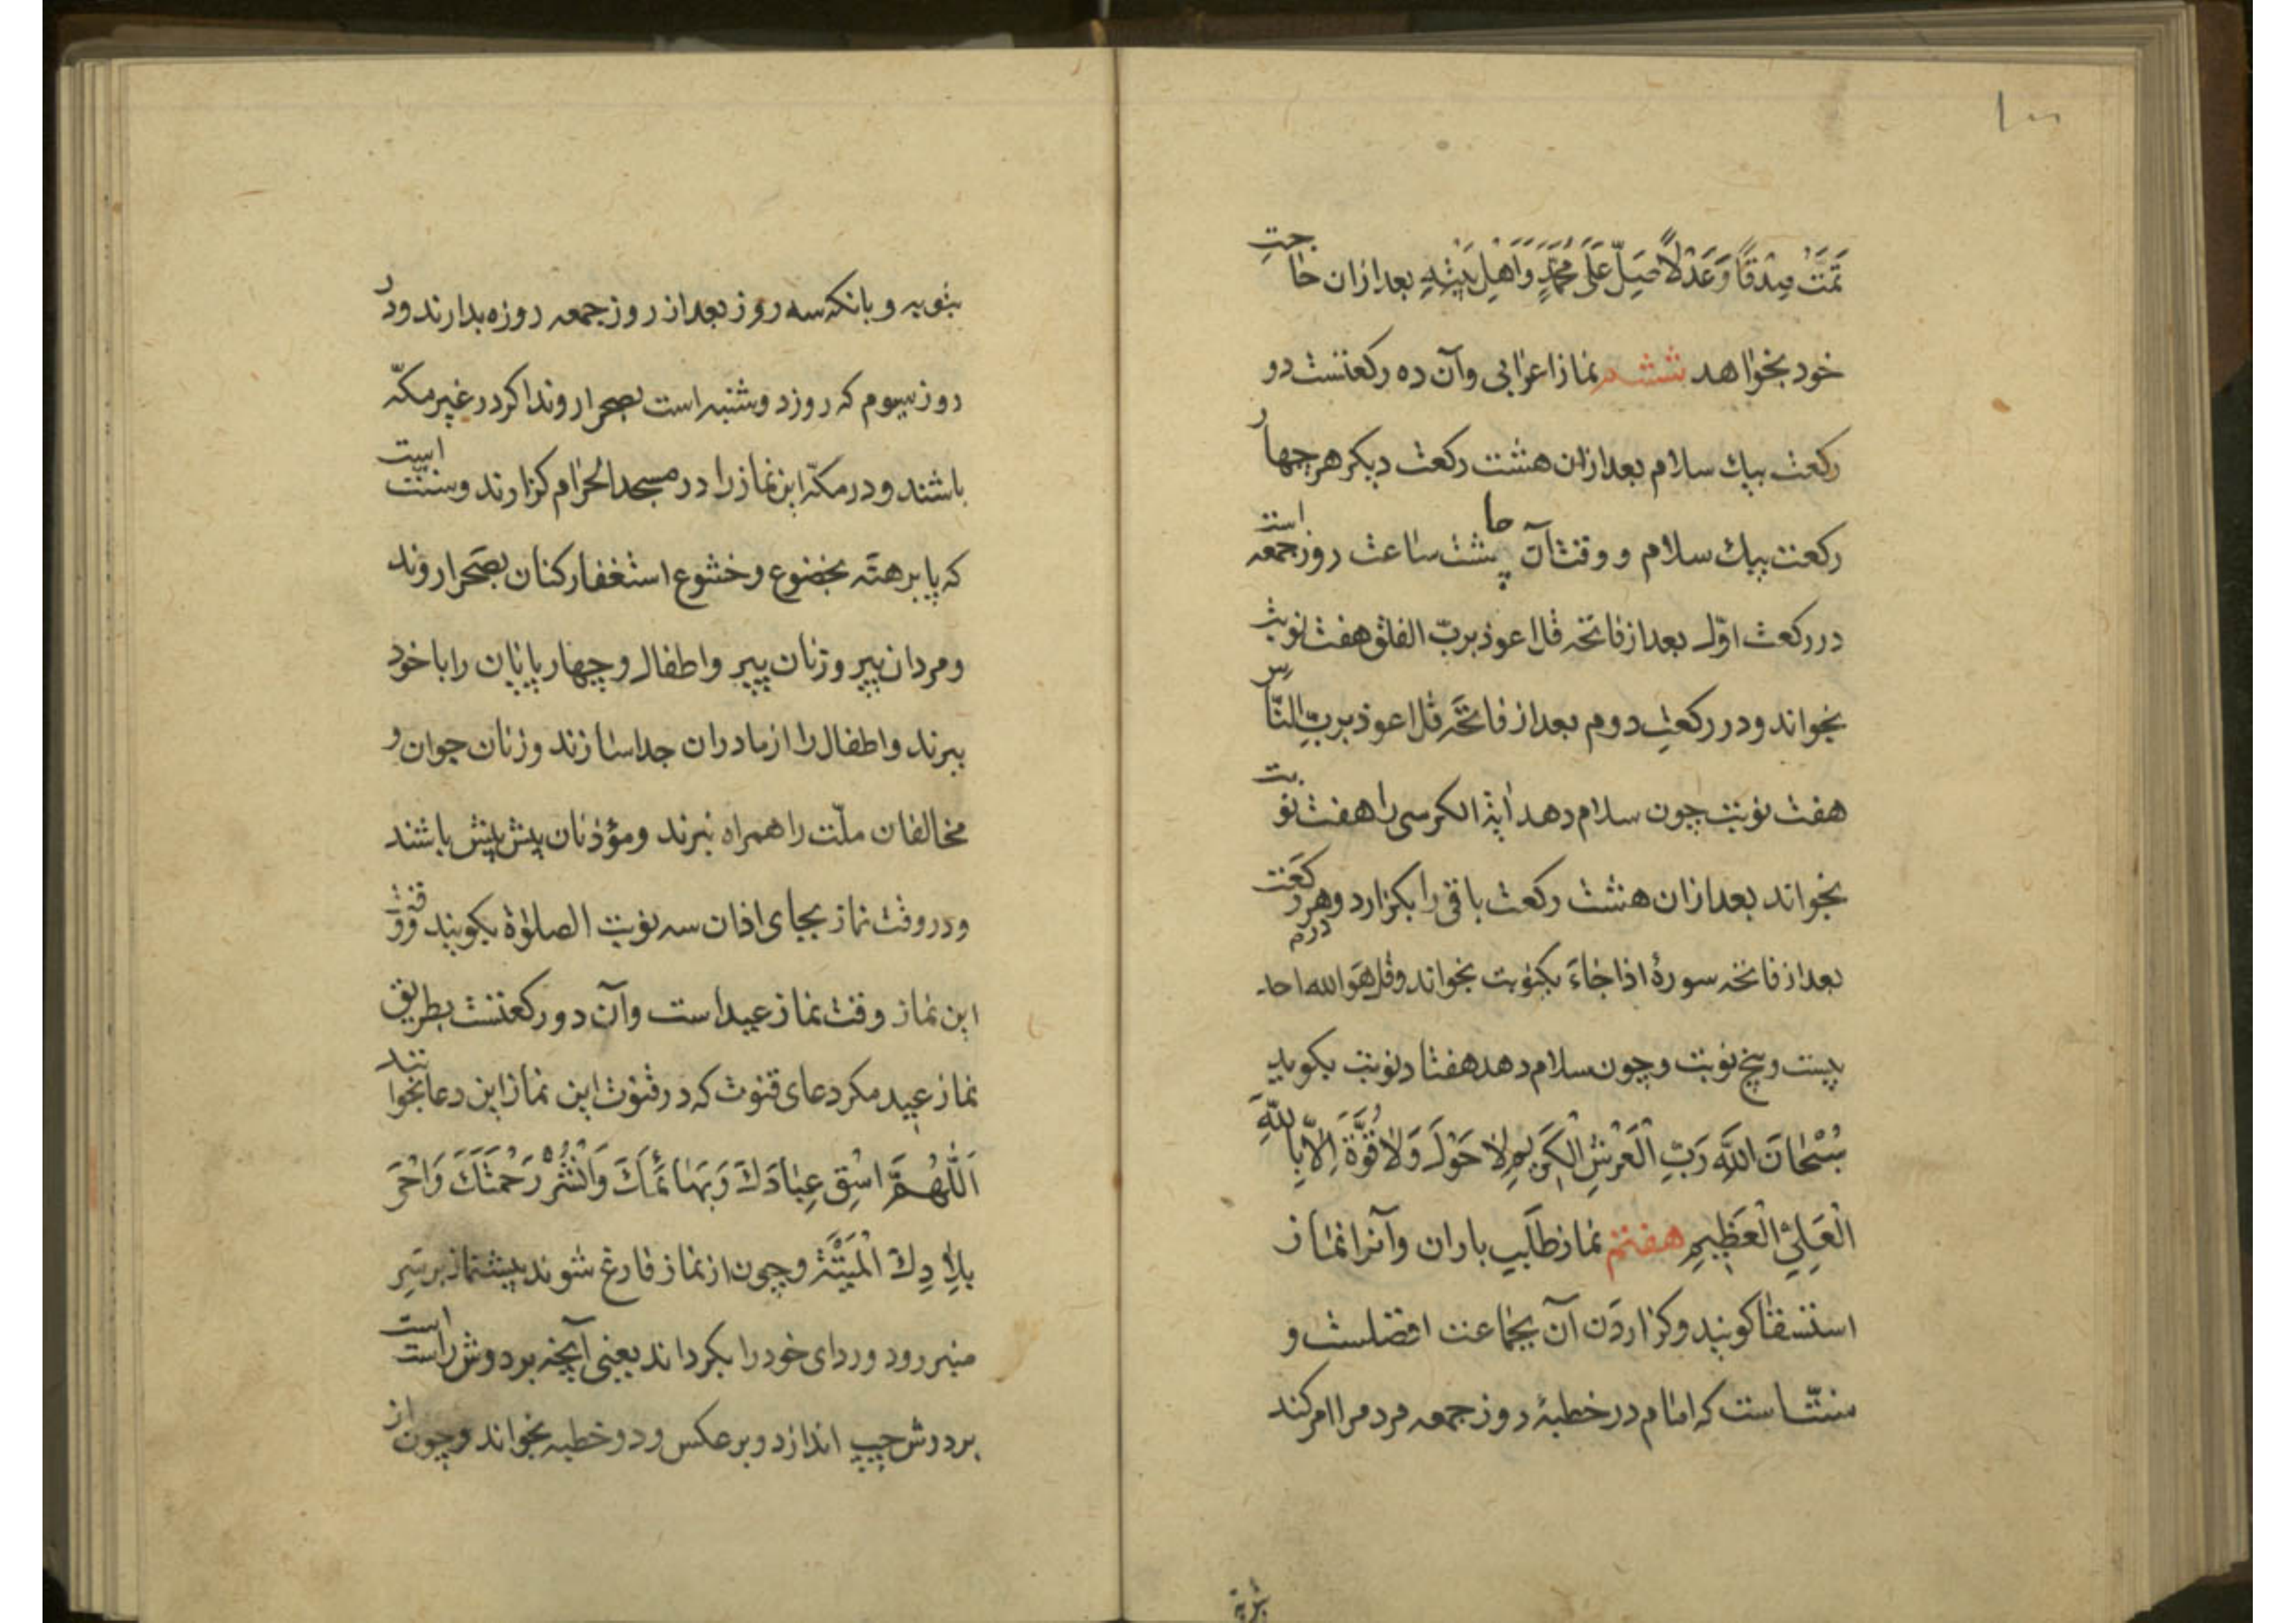 ۱۰۰
تَمَّتْ صِدْقًا وَعَدْلًا صَلِّ عَلَى مُحَمَّدٍ وَاَهْلِ بَيْتِهِ بعد ازان حاجت
خود بخواهد ششم نماز اعرابی وآن ده رکعتست دو
رکعت بیك سلام بعد ازان هشت رکعت دیکر هر چهار
رکعت بیك سلام و وقت آن چاشت ساعت روز جمعه است
در رکعت اوّل بعد از فاتحه قل اعوذ بربّ الفلق هفت نوبت
بخواند و در رکعتِ دوم بعد از فاتحَه قل اعوذ بربِّ النّاس
هفت نوبت چون سلام دهد آیة الکرسی را هفت نوبت
بخواند بعد ازان هشت رکعت باقی را بکزارد و در هر رکعت
بعد از فاتحه سورهٔ اذا جاءَ یکنوبت بخواند وقل هَوَ الله احد
بیست و پنج نوبت و چون سلام دهد هفتاد نوبت بکوید
سُبْحَانَ اللَّهِ رَبِّ الْعَرْشِ الْکَرِیمِ لا حَوْلَ وَلا قُوَّةَ اِلاّ بِاللّهِ
الْعَلِیِّ الْعَظِیمِ هفتم نماز طلَب باران وآنرا نماز
استسقا کویند وکزاردَن آن بجماعت افضلست و
سنّت است که امام در خطبهٔ روز جمعه مردم را امر کند
بتوبه
بتوبه و بانکه سه روز بعد از روز جمعه روزه بدارند ودر
روز سیوم که روز دوشنبه است بصحرا روند اکر در غیر مکّه
باشند ودر مکّه این نماز را در مسجد الحرام کزارند وسنّت است
که پا برهنه بخضوع وخشوع استغفار کنان بصَحرا روند
ومردان پیر وزنان پیر واطفال وچهار پایان را با خود
ببرند واطفال را از مادران جدا سازند وزنان جوان و
مخالفان ملّت را همراه نبرند ومؤذنان پیش پیش باشند
ودر وقت نماز بجای اذان سه نوبت الصلوة بکویند ووقت
این نماز وقت نماز عید است وآن دو رکعتست بطریق
نماز عید مکر دعای قنوت که در قنوت این نماز این دعا بخوانند
اَللّٰهُمَّ اسْقِ عِبَادَكَ وَبَهَائِمَكَ وَانْشُرْ رَحْمَتَكَ وَاَحْیِ
بِلَادِكَ الْمَیِّتَةَ وچون از نماز فارغ شوند پیشنماز بر سَرِ
منبر رود وردای خود را بکرداند یعنی آنچه بر دوش راست است
بر دوش چپ اندازد وبر عکس ودو خطبه بخواند وچون از